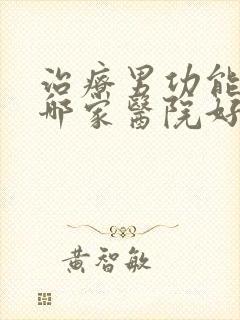 治療男功能
哪家醫院好
黃智敏